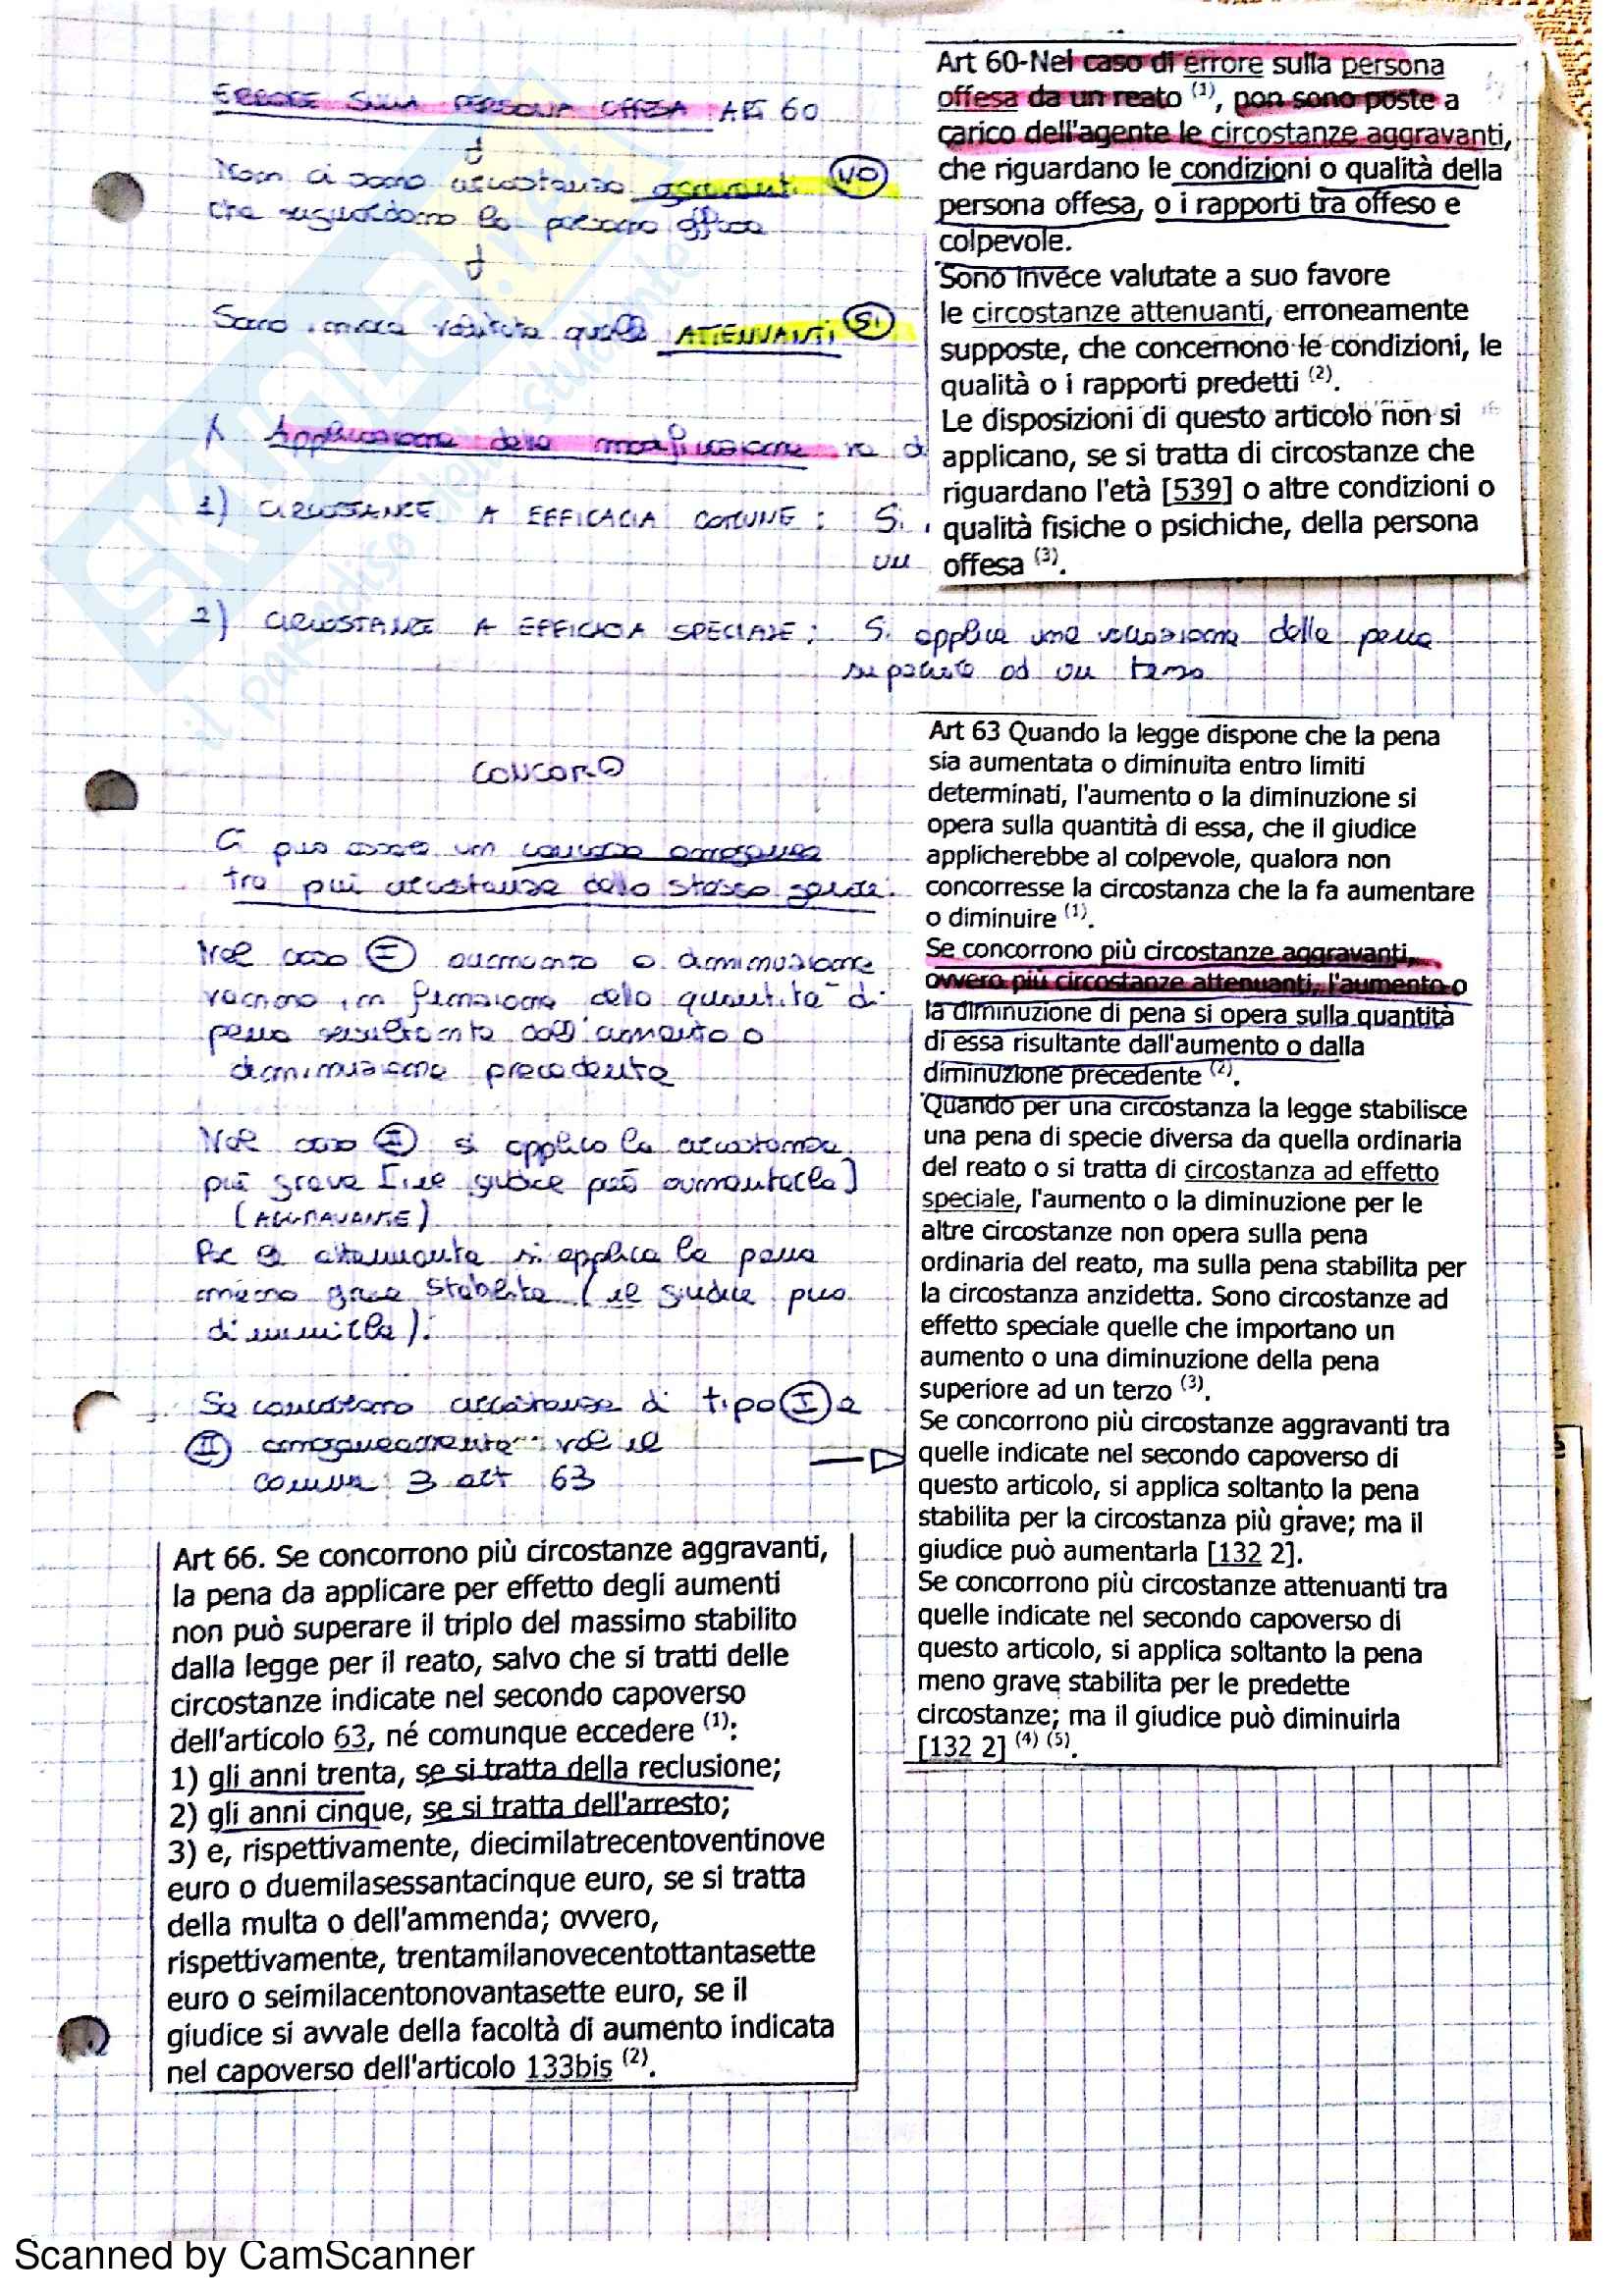 ERRORE SULLA PERSONA OFFESA ART 60
Non ci sono circostanze aggravanti NO
che riguardano la persona offesa
Sono invece valutate quelle ATTENUANTI SI
Applicazione della modificazione va d
1) CIRCOSTANZE A EFFICACIA COMUNE : Si
un
2) CIRCOSTANZE A EFFICACIA SPECIALE : Si applica una variazione della pena
superiore ad un terzo
Art 60-Nel caso di errore sulla persona
offesa da un reato (1), non sono poste a
carico dell'agente le circostanze aggravanti,
che riguardano le condizioni o qualità della
persona offesa, o i rapporti tra offeso e
colpevole.
Sono invece valutate a suo favore
le circostanze attenuanti, erroneamente
supposte, che concernono le condizioni, le
qualità o i rapporti predetti (2).
Le disposizioni di questo articolo non si
applicano, se si tratta di circostanze che
riguardano l'età [539] o altre condizioni o
qualità fisiche o psichiche, della persona
offesa (3).
CONCORSO
Ci può essere un concorso omogeneo
tra più circostanze dello stesso genere.
Nel caso I aumento o diminuzione
vanno in funzione della quantità di
pena risultante dall'aumento o
diminuzione precedente
Nel caso II si applica la circostanza
più grave [il giudice può aumentarla]
(AGGRAVANTE)
Per le attenuante si applica la pena
meno grave stabilita (il giudice può
diminuirla).
Se concorrono circostanze di tipo I e
II omogeneamente vale il
comma 3 art 63
Art 63 Quando la legge dispone che la pena
sia aumentata o diminuita entro limiti
determinati, l'aumento o la diminuzione si
opera sulla quantità di essa, che il giudice
applicherebbe al colpevole, qualora non
concorresse la circostanza che la fa aumentare
o diminuire (1).
Se concorrono più circostanze aggravanti,
ovvero più circostanze attenuanti, l'aumento o
la diminuzione di pena si opera sulla quantità
di essa risultante dall'aumento o dalla
diminuzione precedente (2).
Quando per una circostanza la legge stabilisce
una pena di specie diversa da quella ordinaria
del reato o si tratta di circostanza ad effetto
speciale, l'aumento o la diminuzione per le
altre circostanze non opera sulla pena
ordinaria del reato, ma sulla pena stabilita per
la circostanza anzidetta. Sono circostanze ad
effetto speciale quelle che importano un
aumento o una diminuzione della pena
superiore ad un terzo (3).
Se concorrono più circostanze aggravanti tra
quelle indicate nel secondo capoverso di
questo articolo, si applica soltanto la pena
stabilita per la circostanza più grave; ma il
giudice può aumentarla [132 2].
Se concorrono più circostanze attenuanti tra
quelle indicate nel secondo capoverso di
questo articolo, si applica soltanto la pena
meno grave stabilita per le predette
circostanze; ma il giudice può diminuirla
[132 2] (4) (5).
Art 66. Se concorrono più circostanze aggravanti,
la pena da applicare per effetto degli aumenti
non può superare il triplo del massimo stabilito
dalla legge per il reato, salvo che si tratti delle
circostanze indicate nel secondo capoverso
dell'articolo 63, né comunque eccedere (1):
1) gli anni trenta, se si tratta della reclusione;
2) gli anni cinque, se si tratta dell'arresto;
3) e, rispettivamente, diecimilatrecentoventinove
euro o duemilasessantacinque euro, se si tratta
della multa o dell'ammenda; ovvero,
rispettivamente, trentamilanovecentottantasette
euro o seimilacentonovantasette euro, se il
giudice si avvale della facoltà di aumento indicata
nel capoverso dell'articolo 133bis (2).
SKUOLA.net
il paradiso dello studente
Scanned by CamScanner